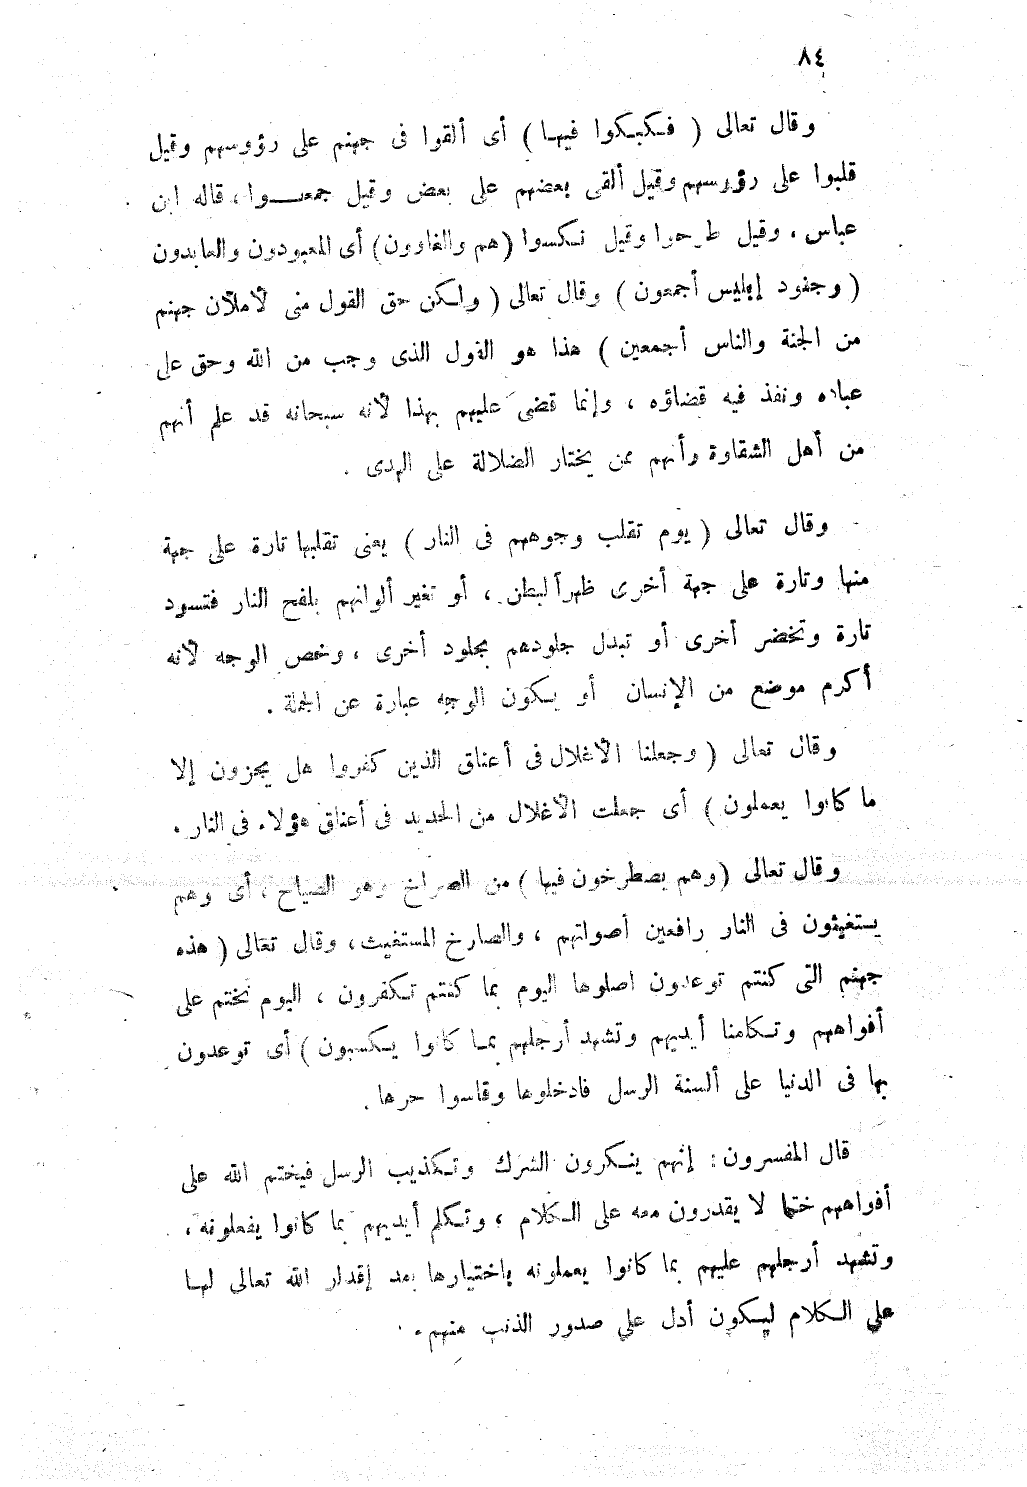 ٨٤
وقال تعالى ( فكبكبوا فيها ) أى ألقوا فى جهنم على رؤوسهم وقيل
قلبوا على رؤوسهم وقيل ألقى بعضهم على بعض وقيل جمعوا ، قاله ابن
عباس . وقيل طرحوا وقيل نكسوا (هم والغاوون) أى المعبودون والعابدون
( وجنود إبليس أجمعون ) وقال تعالى ( ولكن حق القول منى لأملأن جهنم
من الجنة والناس أجمعين ) هذا هو القول الذى وجب من الله وحق على
عباده ونفذ فيه قضاؤه ، وإنما قضى عليهم بهذا لأنه سبحانه قد علم أنهم
من أهل الشقاوة وأنهم ممن يختار الضلالة على الهدى .
وقال تعالى ( يوم تقلب وجوههم فى النار ) يعنى تقلبها تارة على جهة
منها وتارة على جهة أخرى ظهراً لبطن ، أو تغير ألوانهم بلفح النار فتسود
تارة وتخضر أخرى أو تبدل جلودهم بجلود أخرى ، وخص الوجه لأنه
أكرم موضع من الإنسان أو يكون الوجه عبارة عن الجملة .
وقال تعالى ( وجعلنا الأغلال فى أعناق الذين كفروا هل يجزون إلا
ما كانوا يعملون ) أى جعلت الأغلال من الحديد فى أعناق هؤلاء فى النار .
وقال تعالى (وهم يصطرخون فيها ) من الصراخ وهو الصياح ، أى وهم
يستغيثون فى النار رافعين أصواتهم ، والصارخ المستغيث ، وقال تعالى ( هذه
جهنم التى كنتم توعدون اصلوها اليوم بما كنتم تكفرون ، اليوم نختم على
أفواههم وتكلمنا أيديهم وتشهد أرجلهم بما كانوا يكسبون ) أى توعدون
بها فى الدنيا على ألسنة الرسل فادخلوها وقاسوا حرها .
قال المفسرون : إنهم ينكرون الشرك وتكذيب الرسل فيختم الله على
أفواههم ختما لا يقدرون معه على الكلام ، وتكلم أيديهم بما كانوا يفعلونه ،
وتشهد أرجلهم عليهم بما كانوا يعملونه باختيارها بعد إقدار الله تعالى لها
على الكلام ليكون أدل على صدور الذنب منهم .